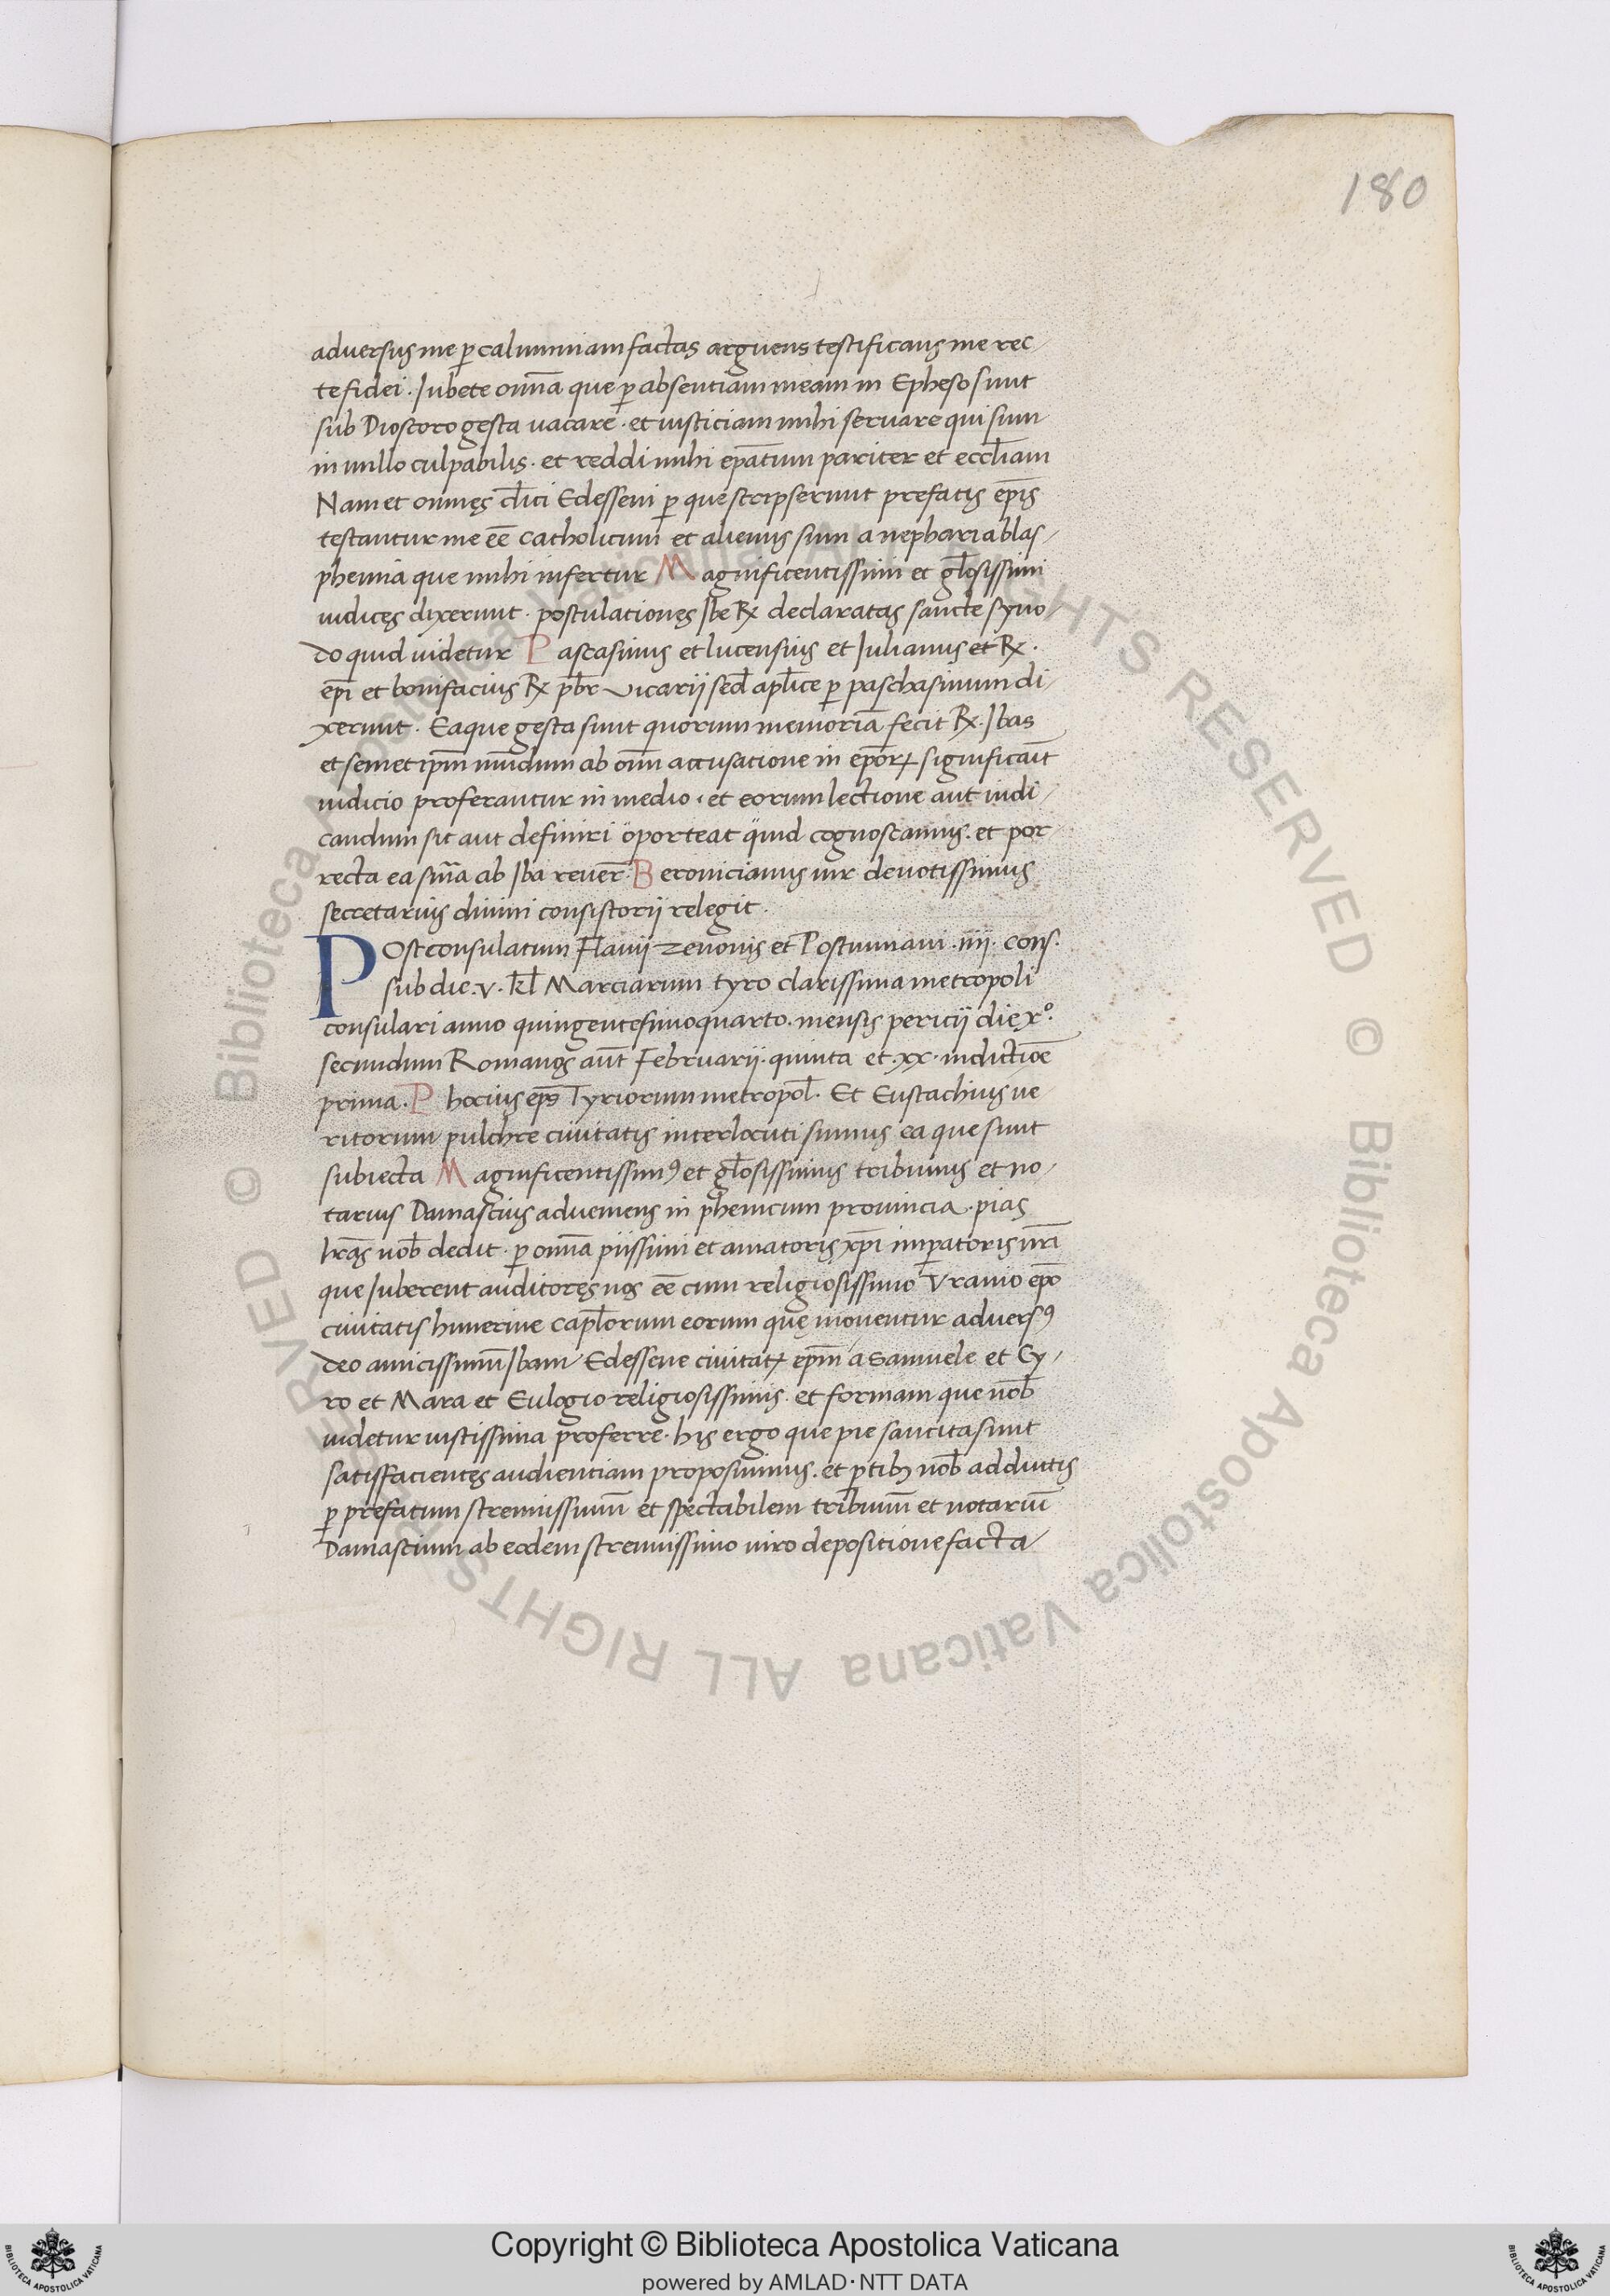 180
adversus me ꝑ calumniam factas arguens testificans me rec-
te fidei. Iubete om̄a que ꝑ absentiam meam in Epheso sunt
sub Dioscoro gesta vacare. et iusticiam mihi servare qui sum
in nullo culpabilis. et reddi mihi ep̄atum pariter et eccl̄iam
Nam et omnes cl̄ici Edesseni ꝑ que scripserunt prefatis ep̄is
testantur me ēe catholicum et alienus sum a nepharia blas-
phemia que mihi infertur Magnificentissimi et gl̄osissimi
iudices dixerunt. postulationes Ibe ℞ declaratas sancte syno-
do quid videtur Pascasinus et lucensius et Iulianus et ℞.
ep̄i et bonifacius ℞ pb̄r vicarii sed̄ apl̄ice ꝑ paschasinum di-
xerunt. Eaque gesta sunt quorum memoriā fecit ℞. Ibas
et semet ip̄m mundum ab om̄i accusatione in ep̄orꝝ significav̄it
iudicio proferantur in medio. et eorum lectione aut iudi-
candum sit aut definiri oporteat quid cognoscamus. et por-
recta ea sum̄a ab Iba rever̄. Beronicianus vir devotissimus
secretarius divini consistorii relegit.
Post consulatum Flavii Zenonis et Postumiani .iiii. cons.
sub die .v. kl̄ Marciarum tyro clarissima metropoli
consulari anno quingentesimoquarto. mensis pericii die xº.
secundum Romanos aūt Februarii. quinta et .xx. indictiōe
prima. Phocius ep̄s Tyriorum metropol̄. Et Eustachius ve
ritorum pulchre civitatis interlocuti sumus ea que sunt
subiecta Magnificentissimꝰ et gl̄osissimus tribunus et no-
tarius Damascius adveniens in phenicum provincia. pias
lr̄as nob̄ dedit. ꝑ om̄a piissimi et amatoris xp̄i imꝑatoris nr̄i
que Iuberent auditores nos ēe cum religiosissimo Uranio ep̄o
civitatis himerine capl̄orum eorum que moventur adversꝰ
deo amicissimū Ibam Edessene civitatꝭ ep̄m a Samuele et Cy-
ro et Mara et Eulogio religiosissimis. et formam que nob̄
videtur iustissima proferre. his ergo que pie sancita sunt
satisfacientes audientiam proposuimus. et ꝑtibꝫ nob̄ adductis
ꝑ prefatum strenuissimū et spectabilem tribunū et notariū
Damascium ab eodem strenuissimo viro depositione facta
© Biblioteca Apostolica Vaticana ALL RIGHTS RESERVED © Biblioteca Apostolica Vaticana ALL RIGHTS RESERVED
Copyright © Biblioteca Apostolica Vaticana
powered by AMLAD・NTT DATA
BIBLIOTECA APOSTOLICA VATICANA
BIBLIOTECA APOSTOLICA VATICANA